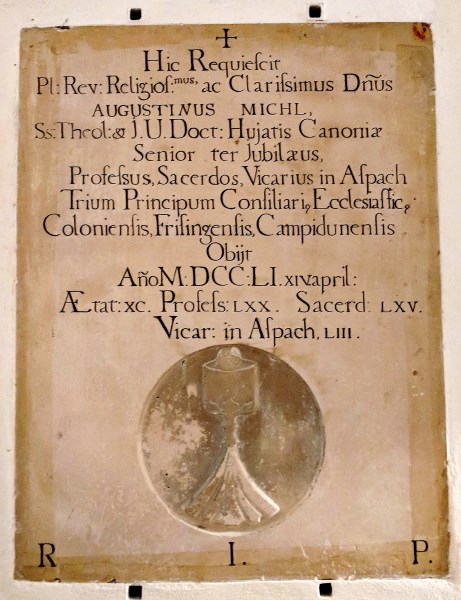 Hic Requiescit
Pl: Rev: Religios:mus, ac Clarissimus Dn̄us
AUGUSTINUS MICHL,
Ss: Theol: & J. U. Doct: Hujatis Canoniæ
Senior ter Jubilæus,
Professus, Sacerdos, Vicarius in Aspach
Trium Principum Consiliari, Ecclesiastic,
Coloniensis, Frisingensis, Campidunensis
Obijt
Año M: DCC: LI. XIV april:
Ætat: XC. Profess: LXX. Sacerd: LXV.
Vicar: in Aspach, LIII.
R. I. P.